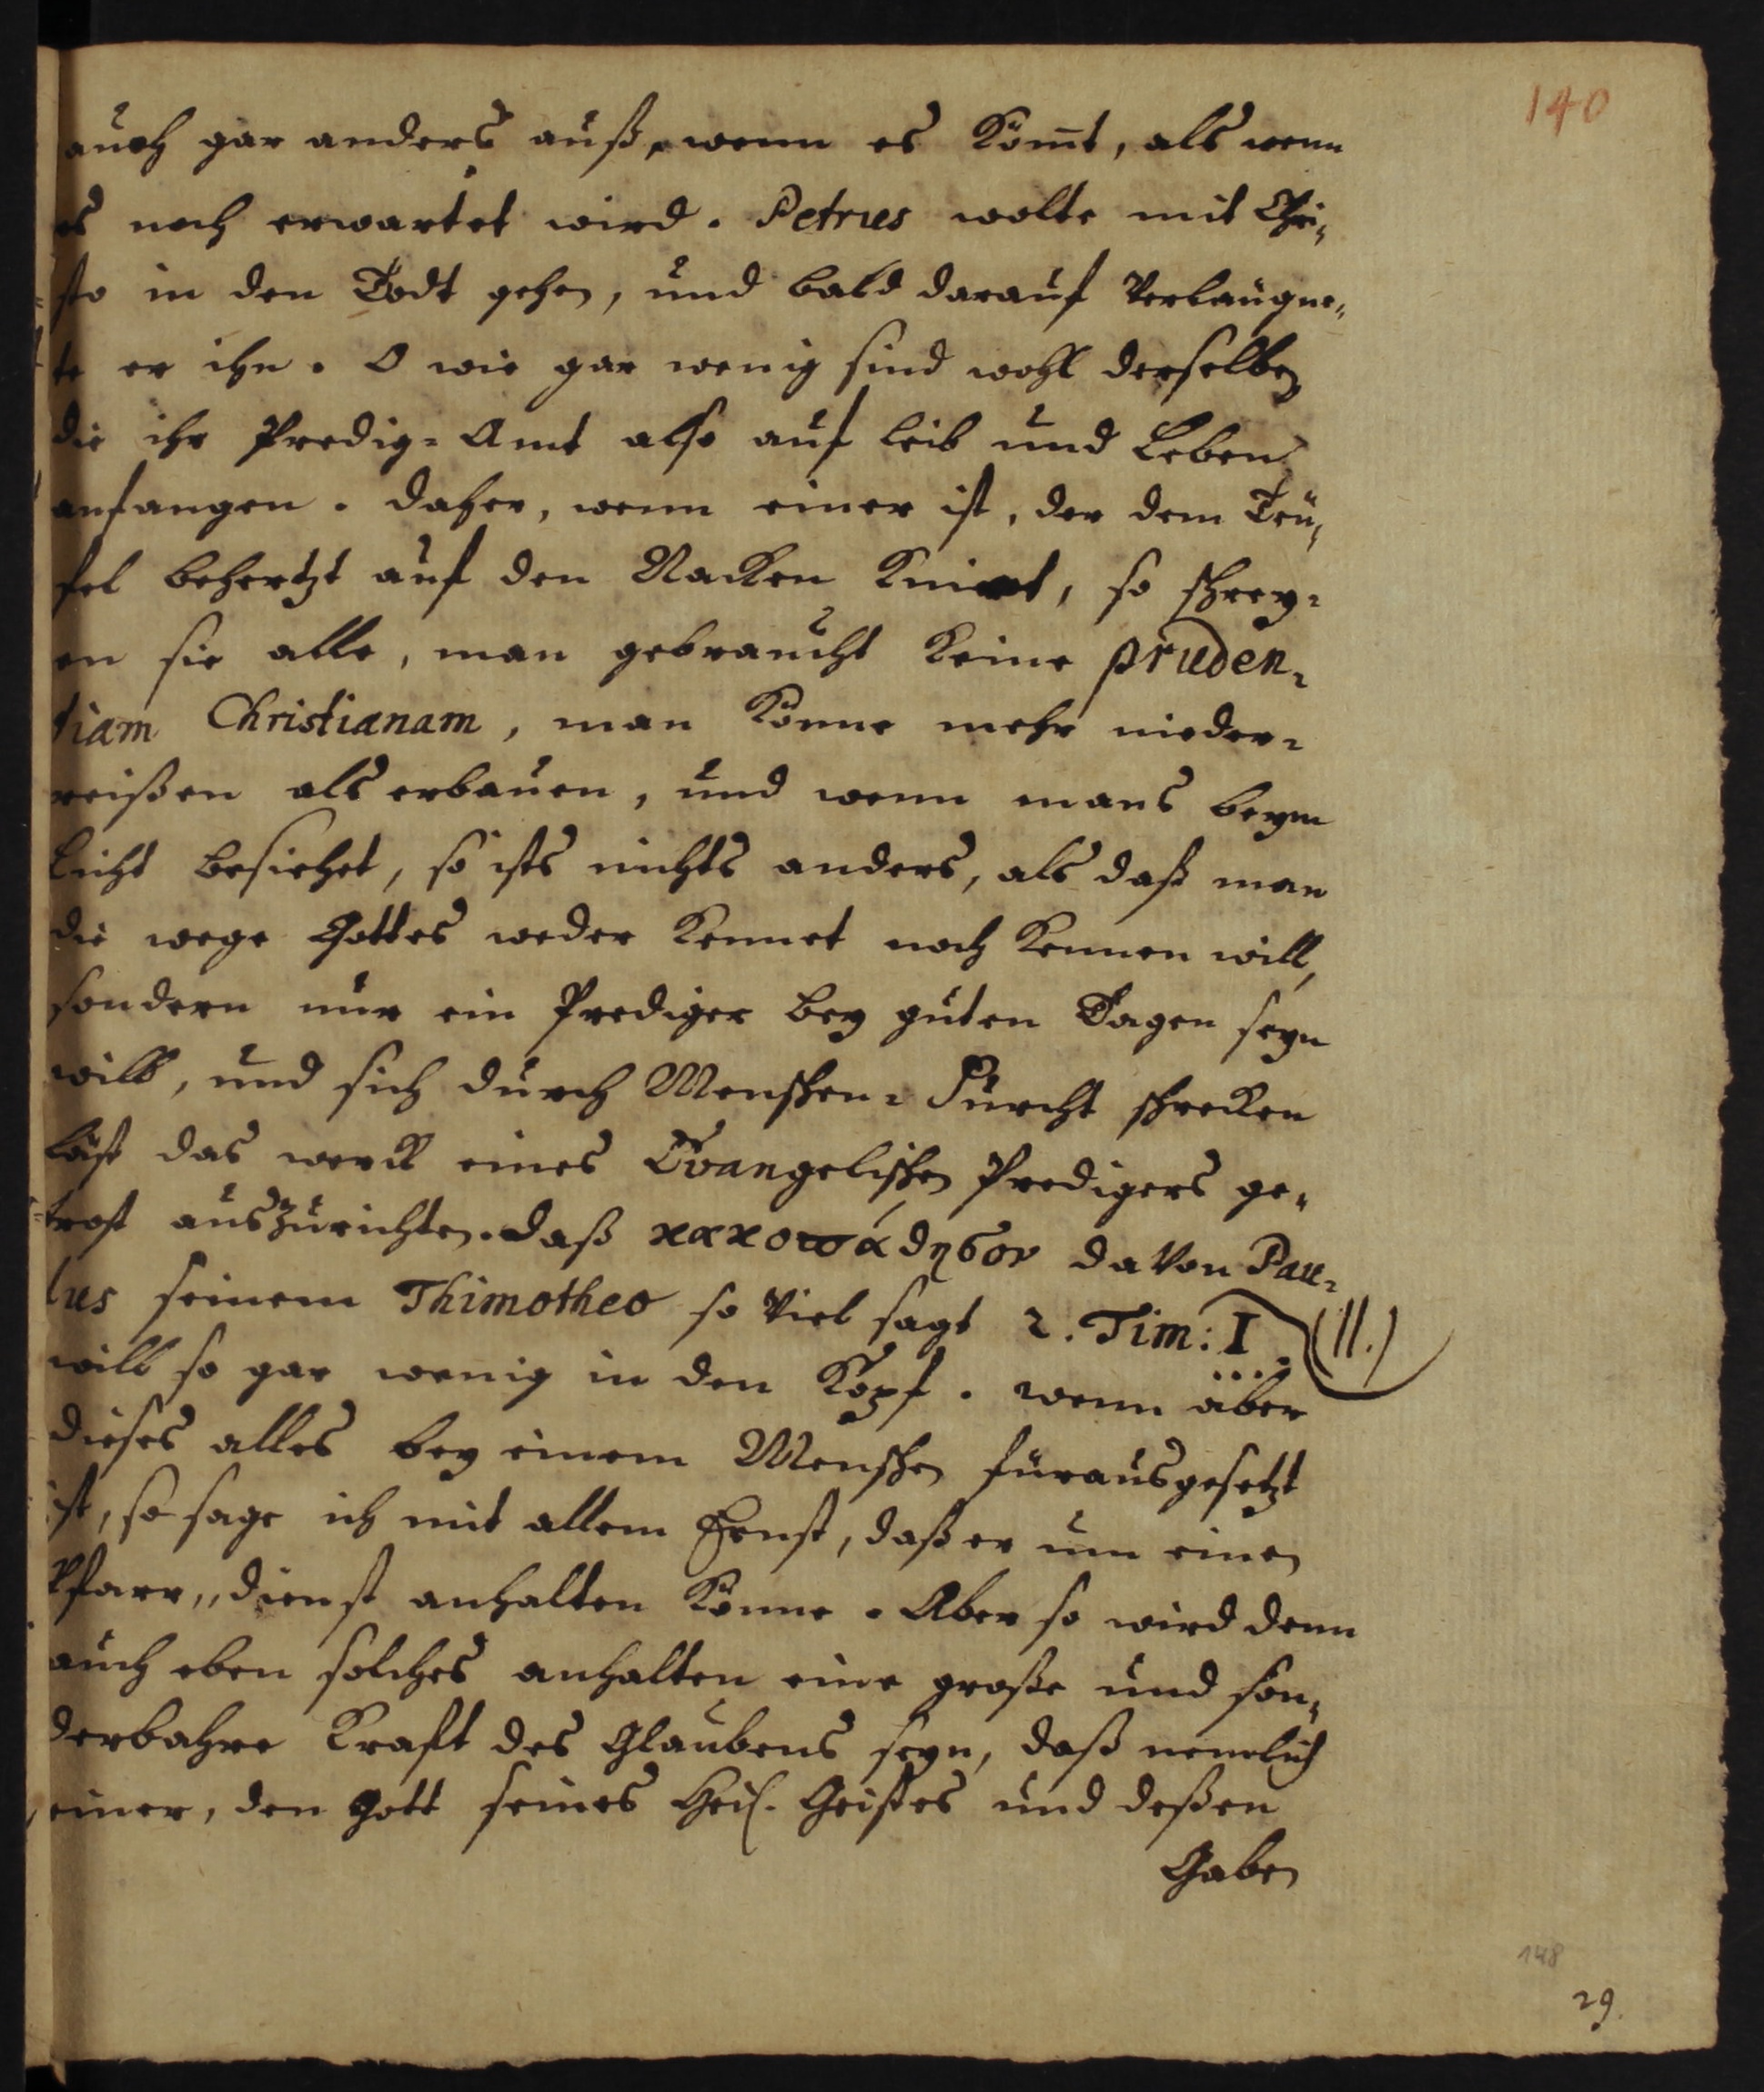 140
auch gar anders auß, wenn es Kom̅t, als wenn
es noch erwartet wird. Petrus wolte mit Chri,
sto in den Todt gehen, und bald darauf Verlaügne,
te er ihn. O wie gar wenig sind wohl derselben
die ihr Predig-Amt also auf leib und Leben
anfangen. daher, wenn einer ist, der dem Teü,
fel behertzt auf den Nacken Kniet, so schrey-
en sie alle, man gebraucht Keine pruden-
tiam Christianam, man Könne mehr nieder-
reißen als erbauen, und wenn mans beym
Licht besiehet, so ists nichts anders, als daß man
die wege Gottes weder Kennet noch Kennen will,
sondern nur ein Prediger bey guten Tagen seyn
will, und sich durch Menschen-Furcht schrecken
läst das werck eines Evangelischen Predigers ge-
trost auszurichten. daß κακοπάθησον da Von Pau-
lus seinem Thimotheo so Viel sagt 2. Tim: I (II.)
will so gar wenig in den Kopf. wenn aber
dieses alles bey einem Menschen fürausgesetzt
ist, so sage ich mit allem Ernst, daß er um einen
Pfarr„dienst anhalten Könne. Aber so wird denn
auch eben solches anhalten eine große und son,
derbahre Kraft des Glaubens seyn, daß nemlich
einer, den Gott seines Heil. Geistes und deßen
Gaben
148
29.